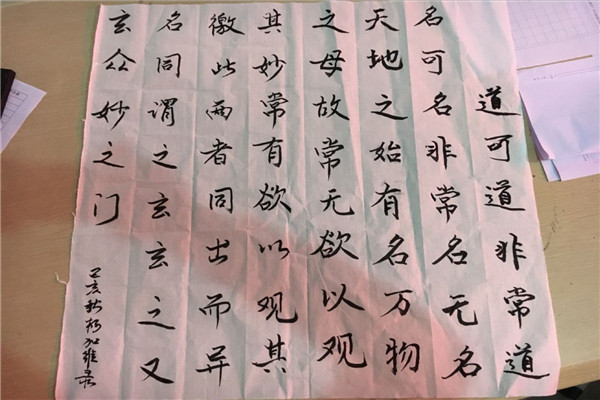 道可道非常道
名可名非常名无名
天地之始有名万物
之母故常无欲以观
其妙常有欲以观其
徼此两者同出而异
名同谓之玄玄之又
玄众妙之门
己亥秋